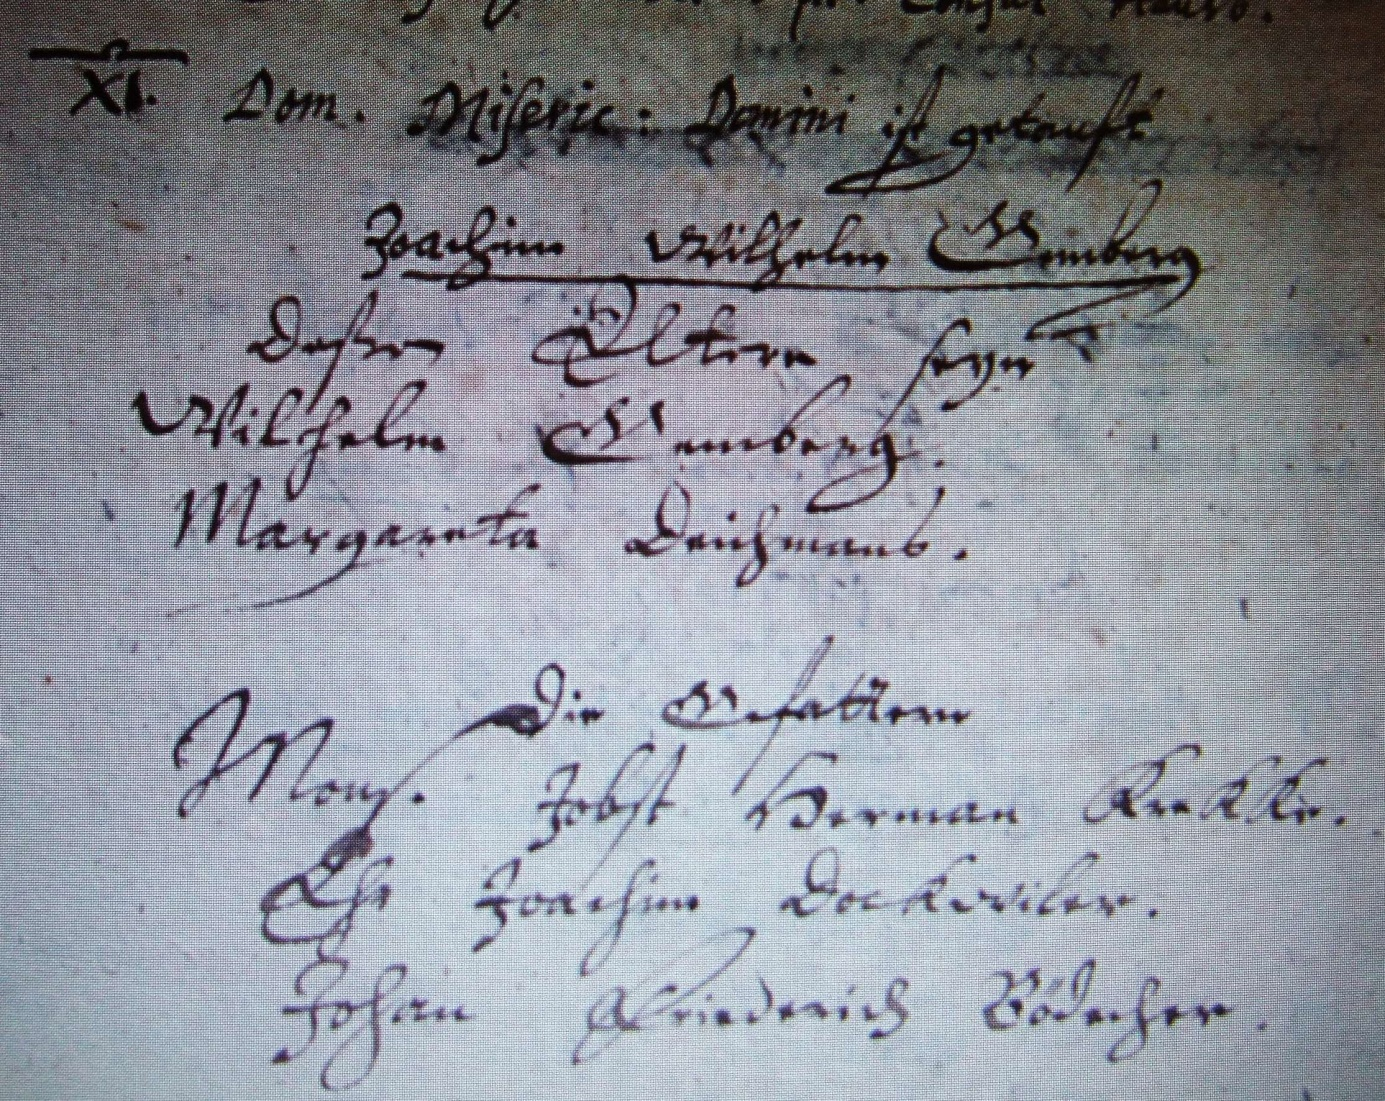 Consul
XI. Dom. Miseric: Domini ist getauft
Joachim Wilhelm Gemberg
Deßen Eltern seyn
Wilhelm Gemberg.
Margareta Deichmans.
Die Gefattern
Mons. Jobst Herman
Ehr Joachim Dockwiler.
Johan Friederich Bödecher.